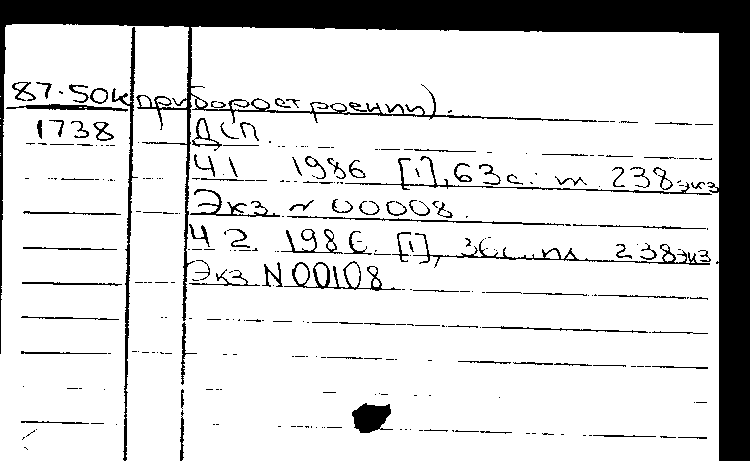 87-50к приборостроении).
1738 ДСП.
Ч1 1986 [1], 63с. 238экз
Экз. N 00008.
Ч2. 1986. [1], 36с. 238экз.
Экз N 00108